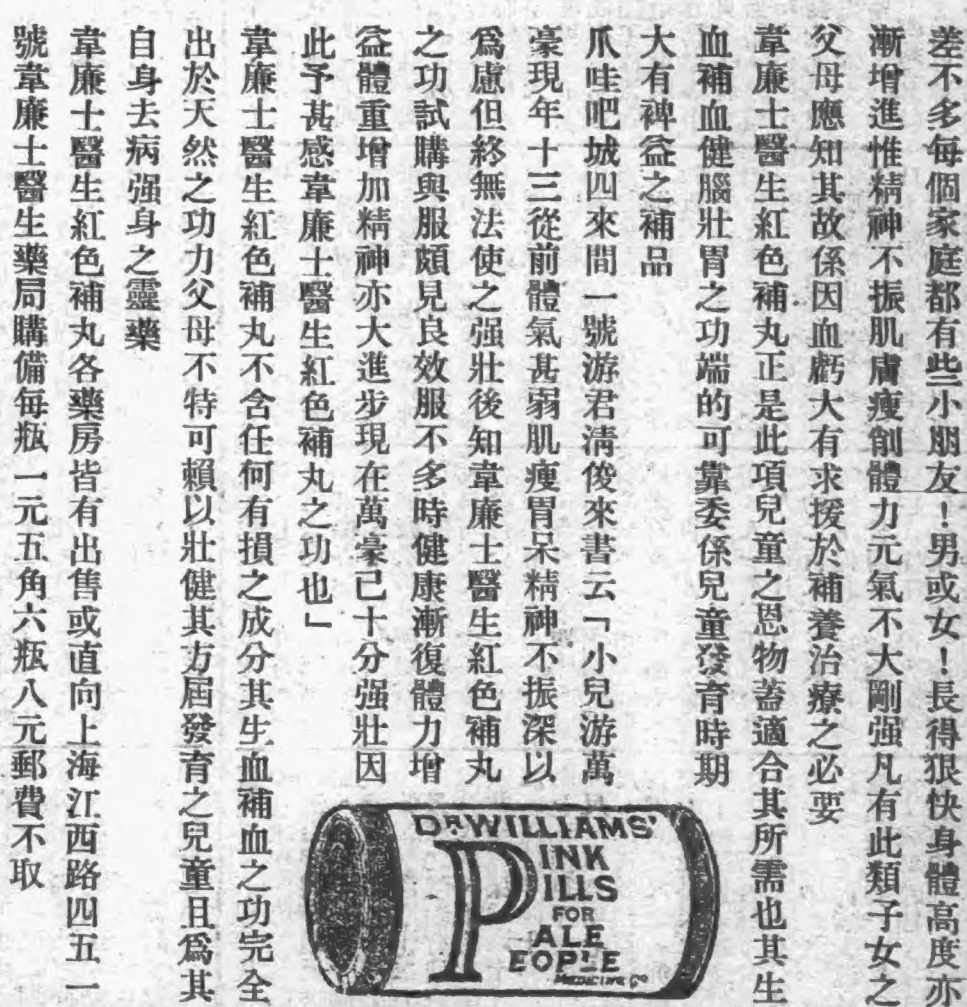 差不多每個家庭都有些小朋友！男或女！長得狠快身體高度亦
漸增進惟精神不振肌膚瘦削體力元氣不大剛强凡有此類子女之
父母應知其故係因血虧大有求援於補養治療之必要
韋廉士醫生紅色補丸正是此項兒童之恩物蓋適合其所需也其生
血補血健腦壯胃之功端的可靠委係兒童發育時期
大有裨益之補品
爪哇吧城四來間一號游君淸俊來書云「小兒游萬
豪現年十三從前體氣甚弱肌瘦胃呆精神不振深以
爲慮但終無法使之强壯後知韋廉士醫生紅色補丸
之功試購與服頗見良效服不多時健康漸復體力增
益體重增加精神亦大進步現在萬豪已十分强壯因
此予甚感韋廉士醫生紅色補丸之功也」
韋廉士醫生紅色補丸不含任何有損之成分其生血補血之功完全
出於天然之功力父母不特可賴以壯健其方屆發育之兒童且爲其
自身去病强身之靈藥
韋廉士醫生紅色補丸各藥房皆有出售或直向上海江西路四五一
號韋廉士醫生藥局購備每瓶一元五角六瓶八元郵費不取
DR WILLIAMS'
PINK
PILLS
FOR
PALE
PEOPLE
MEDICINE Co